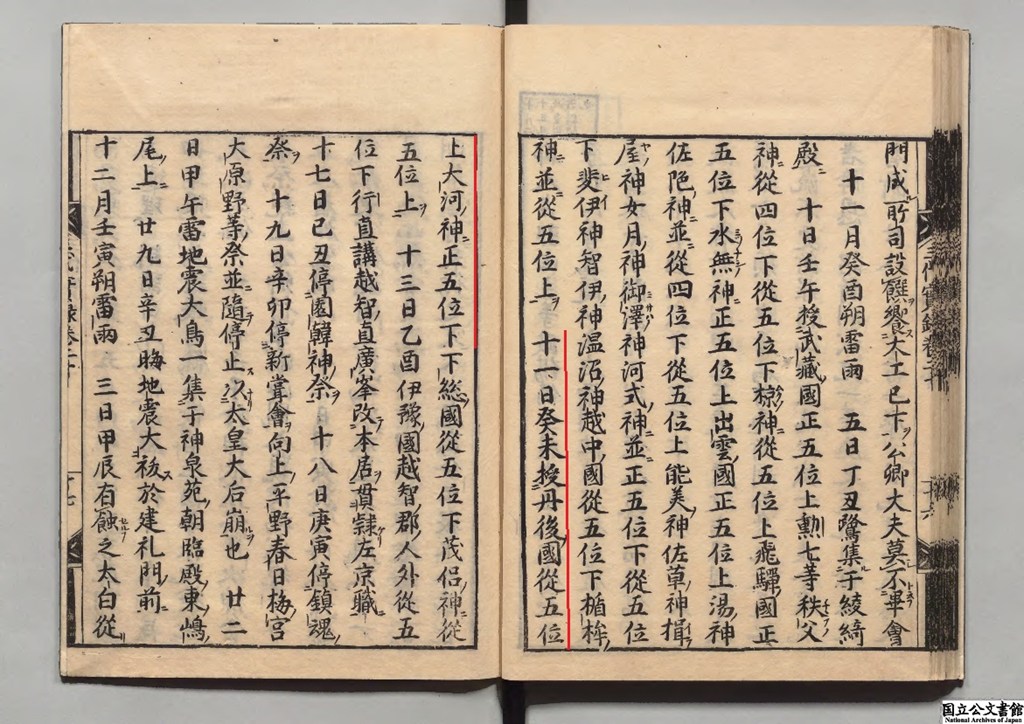 門咸所司設饌饗大工已下公卿大夫莫不畢會
十一月癸酉朔雷雨 五日丁丑鷺集于綾綺
殿 十日壬午授武藏國正五位上勲七等秩父
神從四位下從五位下椋神從五位上飛驒國正
五位下水無神正五位上出雲國正五位上湯神
佐陁神並從四位下從五位上能美神佐草神揖
屋神女月神御澤神河式神並正五位下從五位
下斐伊神智伊神温沼神越中國從五位下楯桙
神並從五位上 十一日癸未授丹後國從五位
上大河神正五位下下総國從五位下茂侶神從
五位上 十三日乙酉伊豫國越智郡人外從五
位下行直講越智直廣峯改本居貫隸左京職
十七日己丑停園韓神祭 十八日庚寅停鎮魂
祭 十九日辛卯停新甞會向上平野春日梅宮
大原野等祭並隨停止以太皇大后崩也 廿二
日甲午雷地震大鳥一集于神泉苑朝臨殿東鴟
尾上 廿九日辛丑晦地震大祓於建礼門前
十二月壬寅朔雷雨 三日甲辰有蝕之太白從
三代實録卷二十
十六
三代實録卷二十
十七
国立公文書館
National Archives of Japan